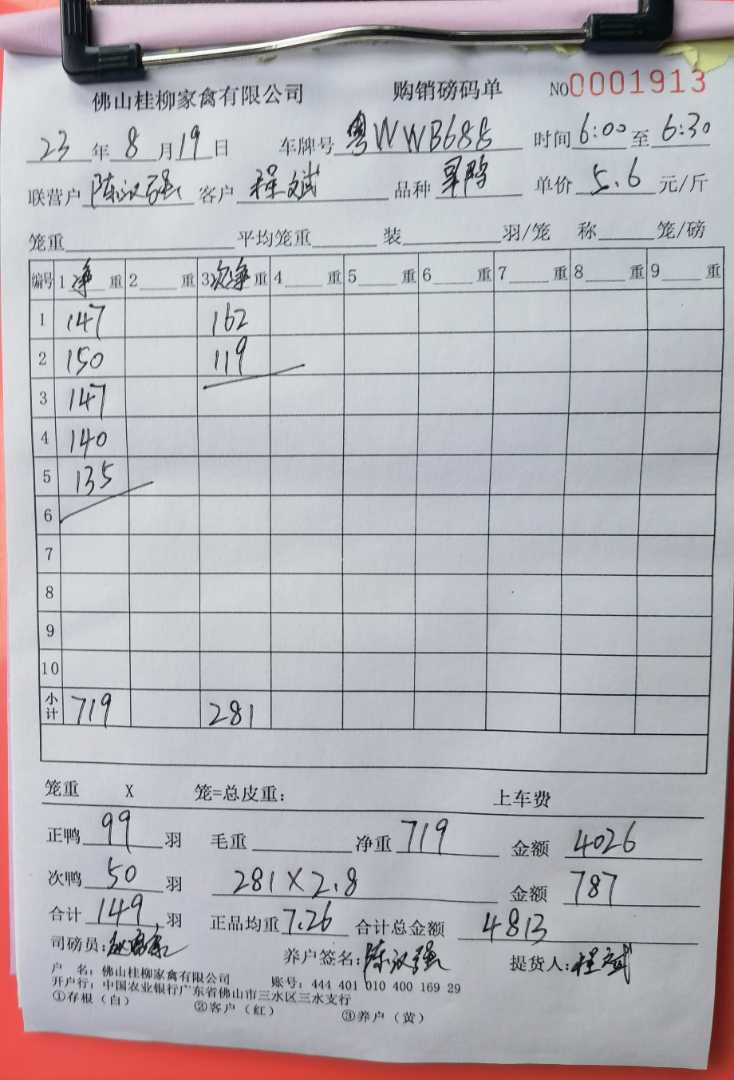 佛山桂柳家禽有限公司 购销磅码单 NO0001913
23 年 8 月 19 日 车牌号 粤WWB688 时间 6:00 至 6:30
联营户 陈汉强 客户 程斌 品种 单价 5.6 元/斤
笼重 平均笼重 装 羽/笼 称 笼/磅
编号 1 净 重 2 重 3 次净 重 4 重 5 重 6 重 7 重 8 重 9 重
1 147 162
2 150 119
3 147
4 140
5 135
6
7
8
9
10
小计 719 281
笼重 X 笼=总皮重: 上车费
正鸭 99 羽 毛重 净重 719 金额 4026
次鸭 50 羽 281×2.8 金额 787
合计 149 羽 正品均重 7.26 合计总金额 4813
司磅员: 养户签名: 陈汉强 提货人: 程斌
户 名: 佛山桂柳家禽有限公司 账号: 444 401 010 400 169 29
开户行: 中国农业银行广东省佛山市三水区三水支行
①存根(白) ②客户(红) ③养户(黄)